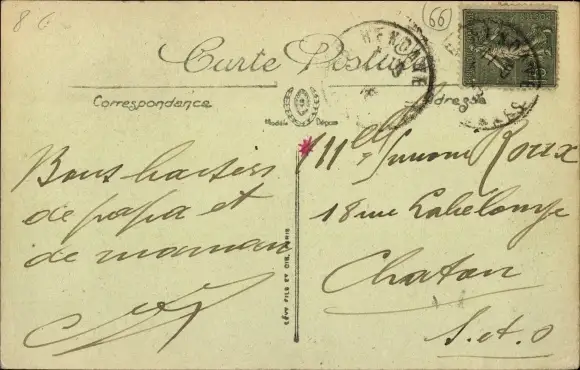 8 6
66
VENDOME
Carte Postale
Correspondance
Adresse
Modèle Déposé
Bons baisers
de papa et
de maman
LÉVY FILS ET CIE, PARIS
Mlle Simone Roux
18 rue
Chatou
S. et O